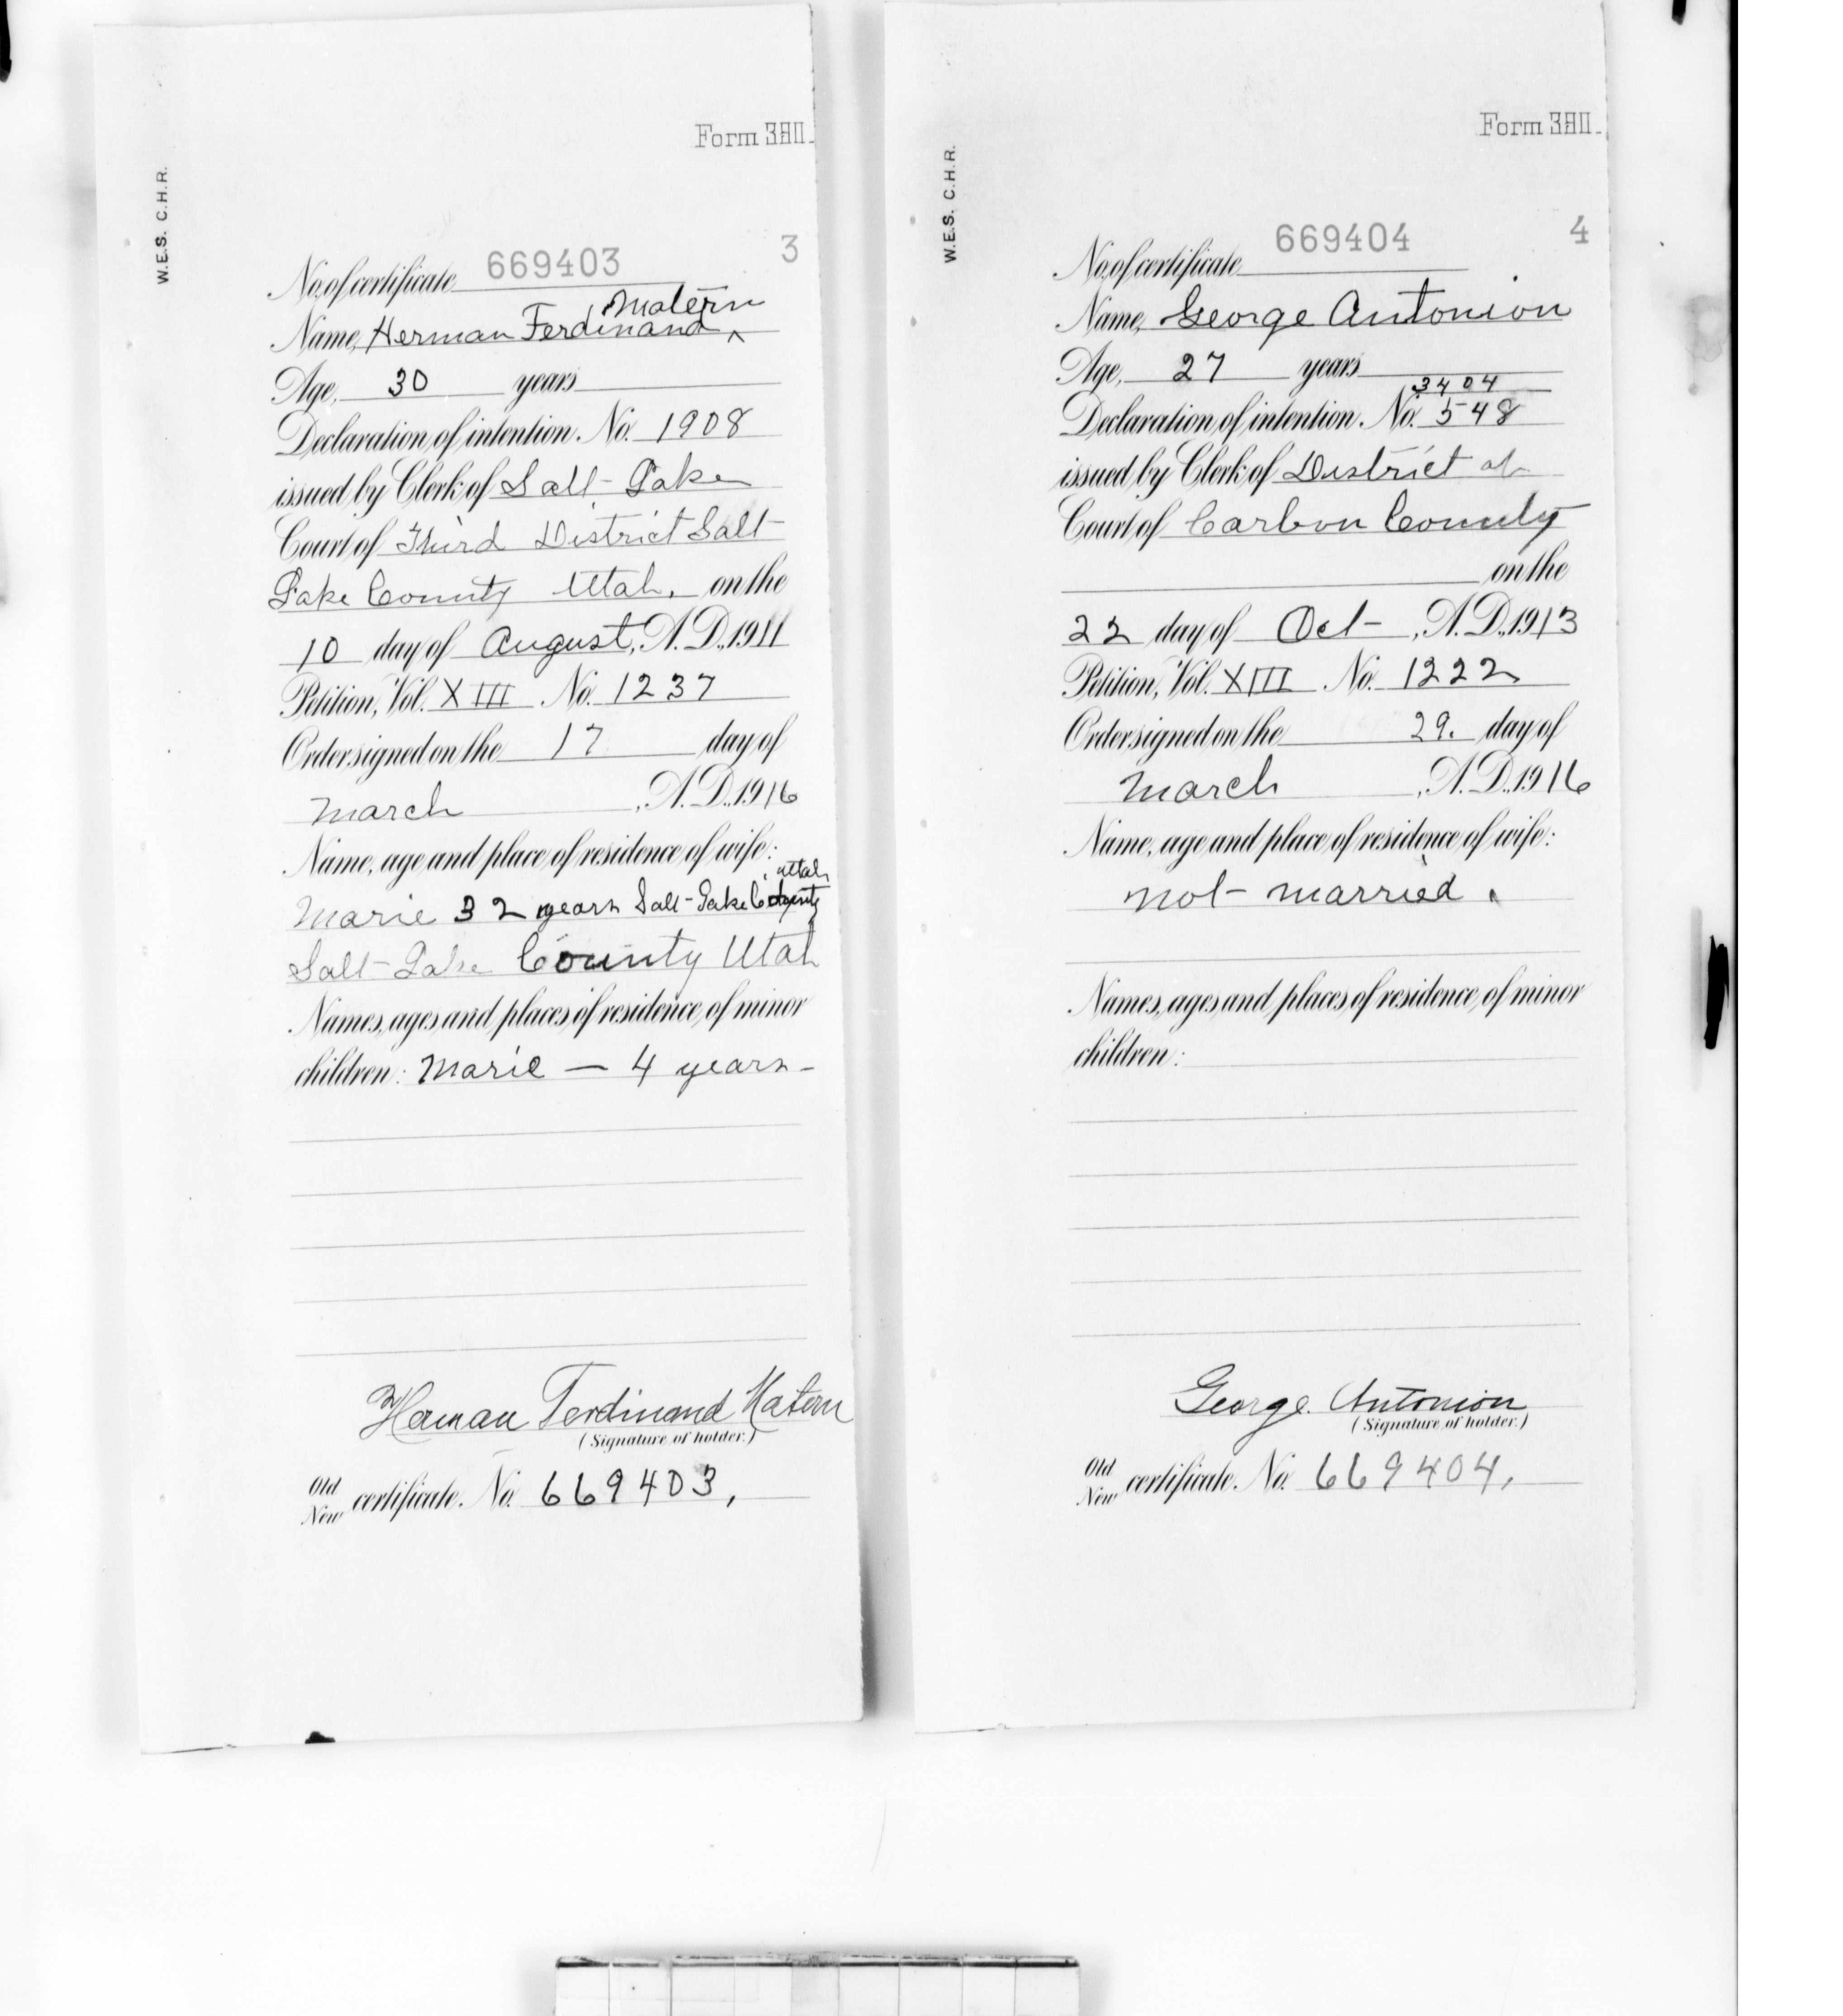 W.E.S. C.H.R.
Form 3811.
3
No. of certificate 669403
Matern
Name, Herman Ferdinand ^
Age, 30 years
Declaration of intention, No. 1908
issued by Clerk of Salt Lake
Court of Third District Salt
Lake County Utah, on the
10 day of August, A. D., 1911
Petition, Vol. XIII No. 1237
Order signed on the 17 day of
March, A. D., 1916
Name, age and place of residence of wife:
Utah
Marie 32 years Salt Lake
Salt Lake County Utah
Names, ages and places of residence of minor
children: Marie — 4 years -
Herman Ferdinand Matern
(Signature of holder.)
Old
New certificate. No. 669403,
W.E.S. C.H.R.
Form 3811.
4
No. of certificate 669404
Name, George Antonion
Age, 27 years
3404
Declaration of intention, No. 548
issued by Clerk of District
Court of Carbon County
on the
22 day of Oct, A. D., 1913
Petition, Vol. XIII No. 1222
Order signed on the 29. day of
March, A. D., 1916
Name, age and place of residence of wife:
not married.
Names, ages and places of residence of minor
children:
George Antonion
(Signature of holder.)
Old
New certificate. No. 669404,